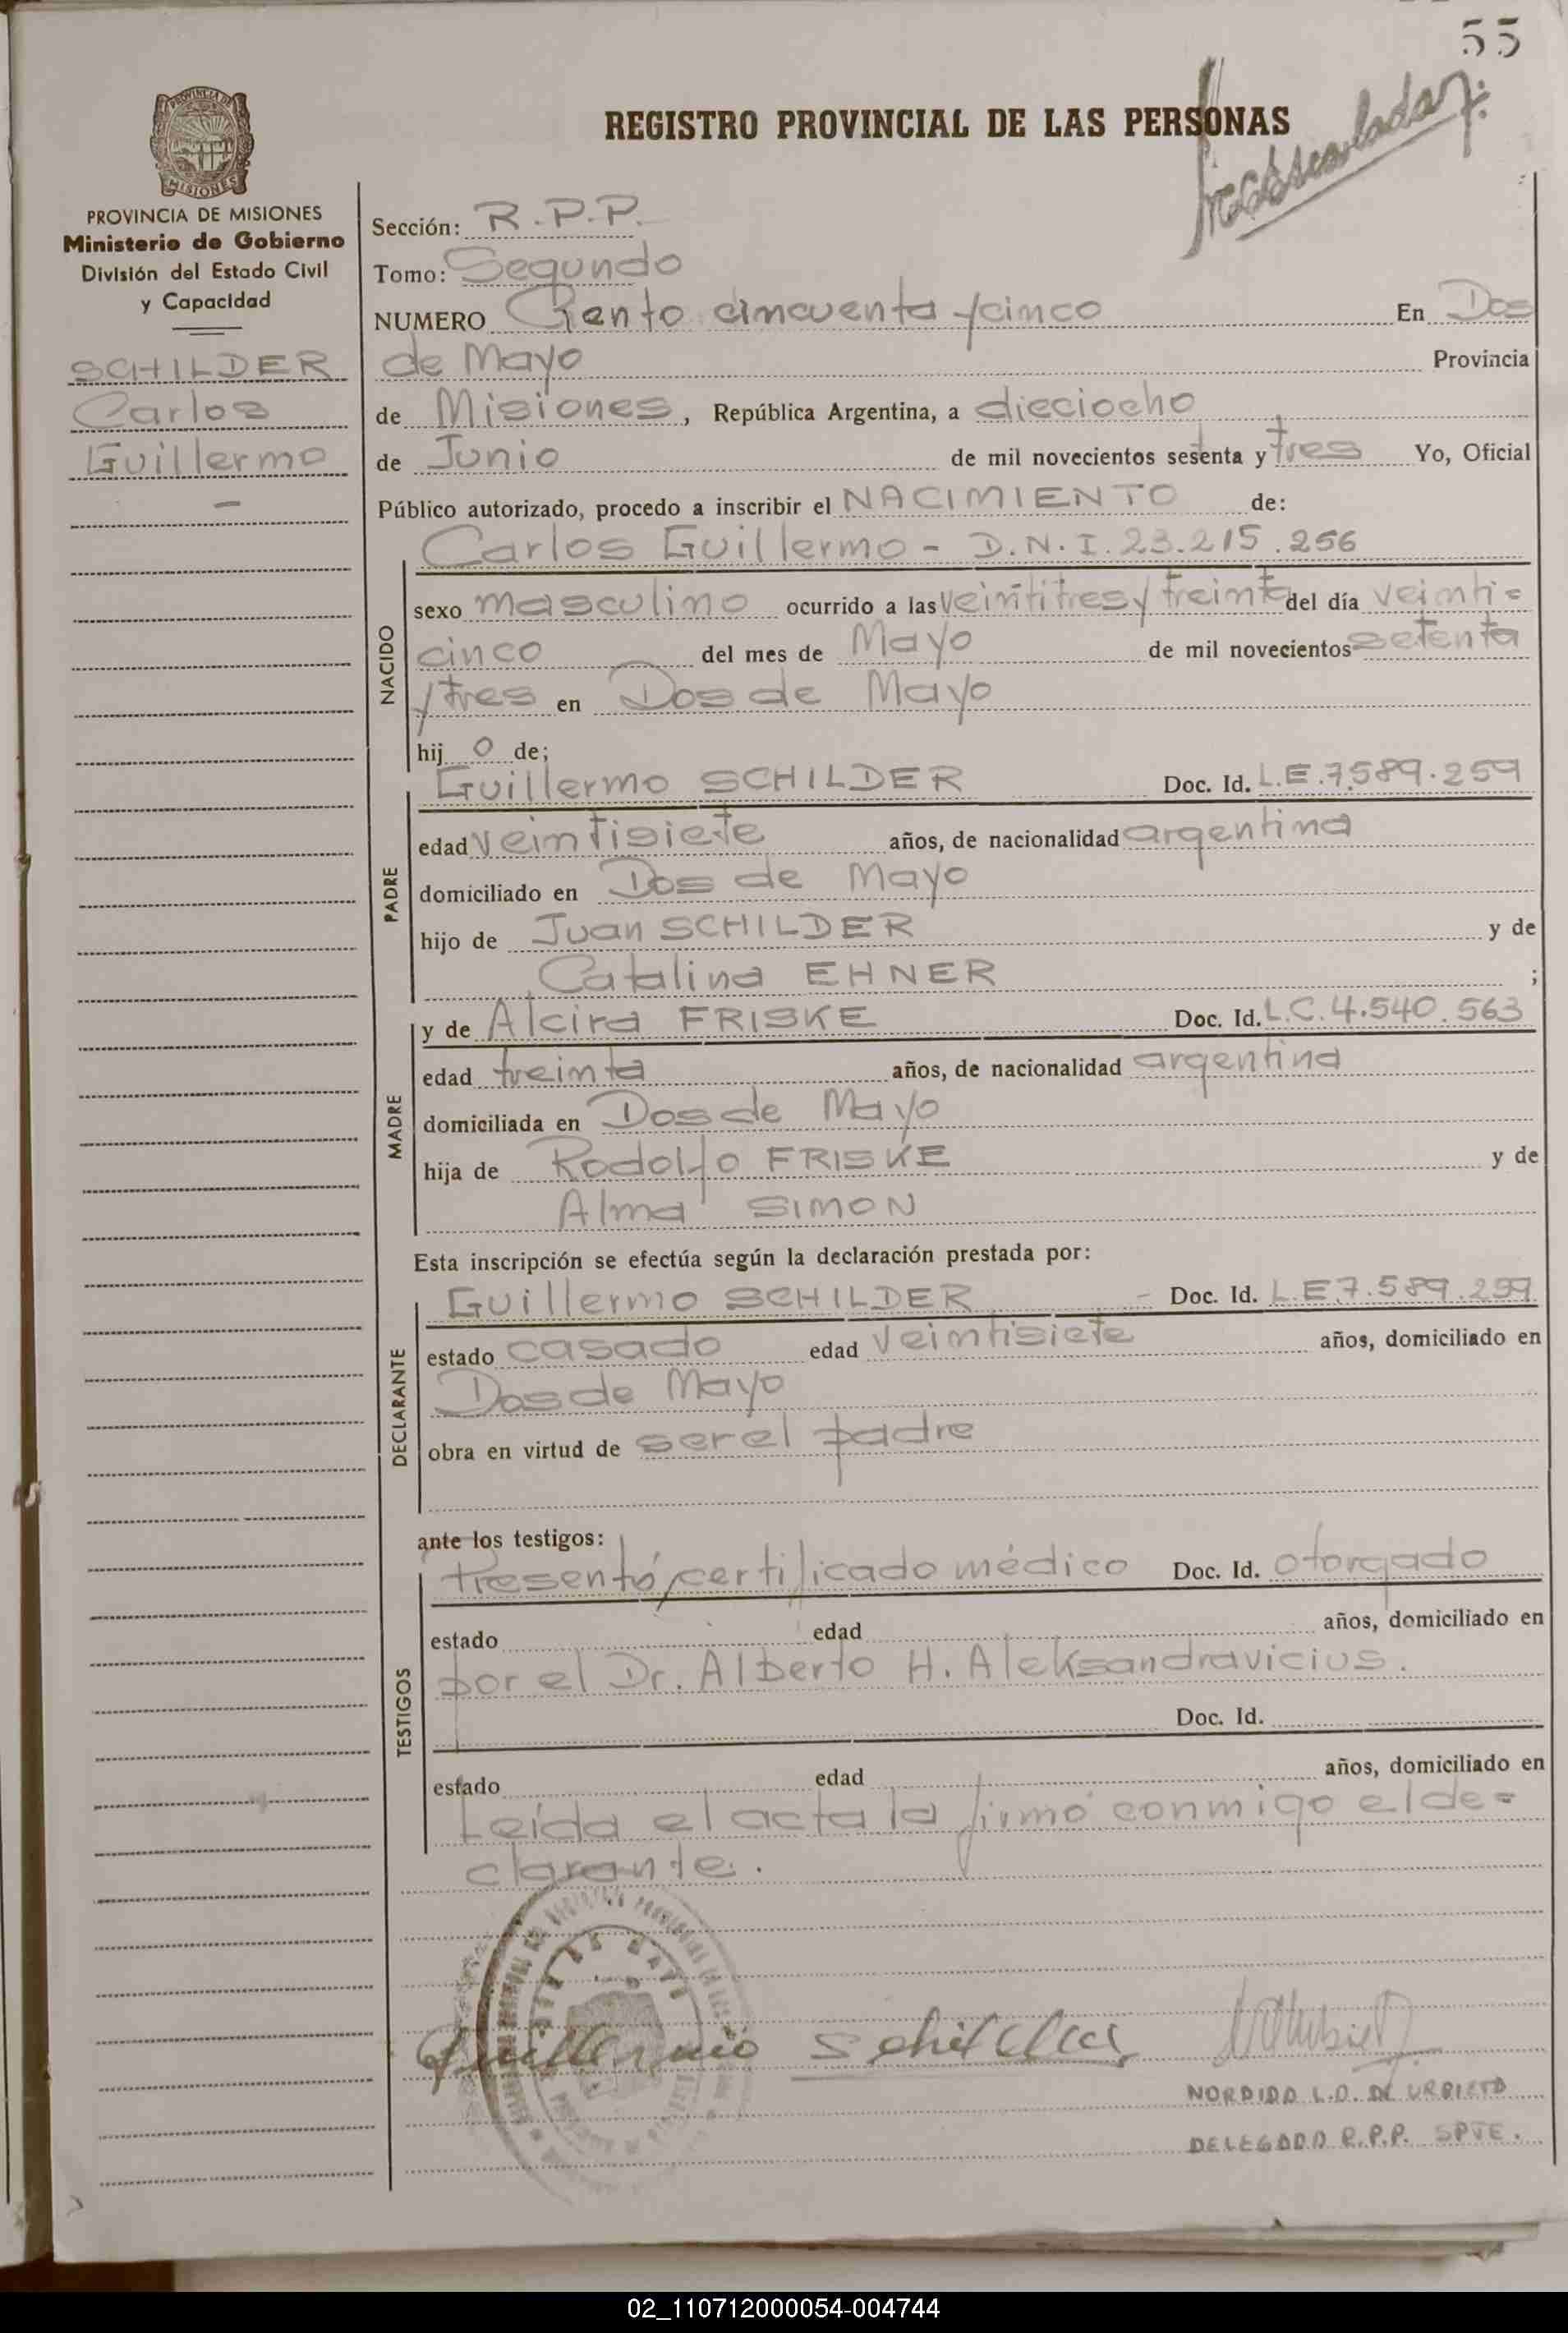 55
REGISTRO PROVINCIAL DE LAS PERSONAS
PROVINCIA DE MISIONES
Ministerio de Gobierno
División del Estado Civil
y Capacidad
SCHILDER
Carlos
Guillermo
Sección: R.P.P.
Tomo: Segundo
NUMERO Ciento cincuenta y cinco En Dos
de Mayo Provincia
de Misiones, República Argentina, a dieciocho
de Junio de mil novecientos setenta y tres Yo, Oficial
Público autorizado, procedo a inscribir el NACIMIENTO de:
NACIDO
Carlos Guillermo - D.N.I. 23.215.256
sexo masculino ocurrido a las veintitres y treinta del día veinti=
cinco del mes de Mayo de mil novecientos setenta
y tres en Dos de Mayo
hij o de;
PADRE
Guillermo SCHILDER Doc. Id. L.E.7.589.259
edad veintisiete años, de nacionalidad argentina
domiciliado en Dos de Mayo
hijo de Juan SCHILDER y de
Catalina EHNER ;
MADRE
y de Alcira FRISKE Doc. Id. L.C.4.540.563
edad treinta años, de nacionalidad argentina
domiciliada en Dos de Mayo
hija de Rodolfo FRISKE y de
Alma SIMON
Esta inscripción se efectúa según la declaración prestada por:
DECLARANTE
Guillermo SCHILDER - Doc. Id. L.E.7.589.259
estado casado edad veintisiete años, domiciliado en
Dos de Mayo
obra en virtud de ser el padre
ante los testigos:
TESTIGOS
Presentó certificado médico Doc. Id. otorgado
estado edad años, domiciliado en
por el Dr. Alberto H. Aleksandravicius.
Doc. Id.
estado edad años, domiciliado en
Leída el acta la firmó conmigo el de=
clarante.
Guillermo Schilder
DELEGADA R.P.P. SPTE.
02_110712000054-004744